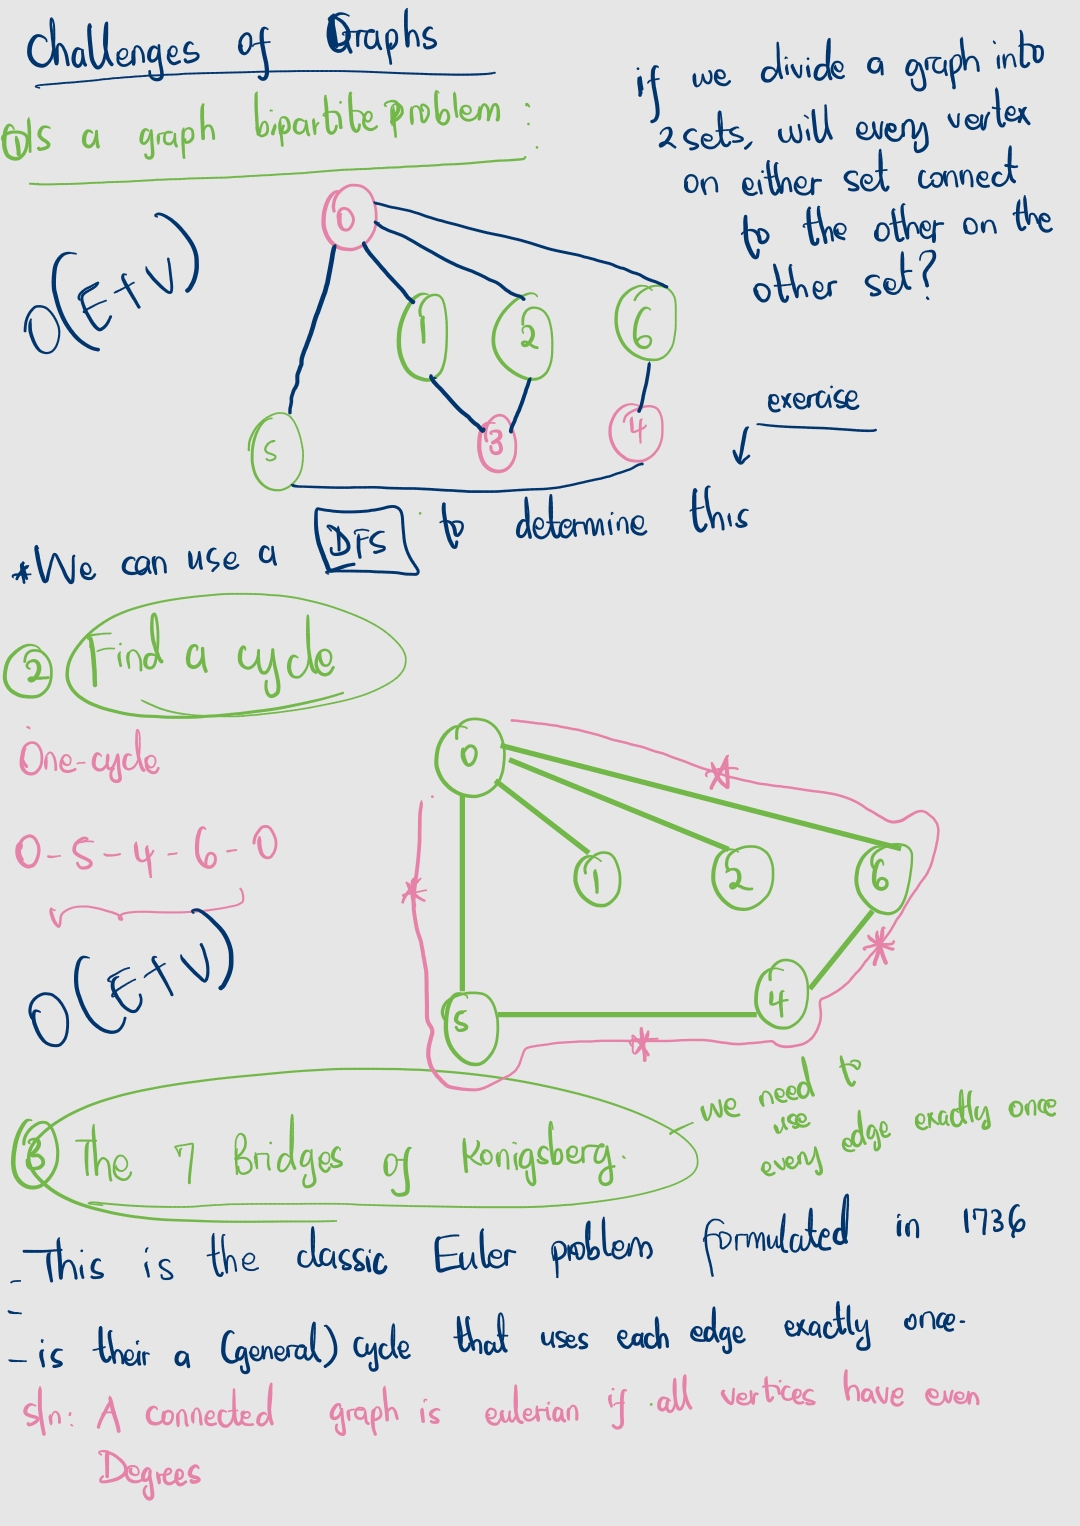 Challenges of Graphs
① Is a graph bipartite problem :
if we divide a graph into
2 sets, will every vertex
on either set connect
to the other on the
other set?
O(E+V)
0
1
2
6
5
3
4
exercise
*We can use a DFS to determine this
② Find a cycle
One-cycle
0-5-4-6-0
O(E+V)
0
1
2
6
5
4
③ The 7 Bridges of Konigsberg.
we need to
use
every edge exactly once
- This is the classic Euler problem formulated in 1736
-
- is their a (general) cycle that uses each edge exactly once.
sln: A connected graph is eulerian if all vertices have even
Degrees